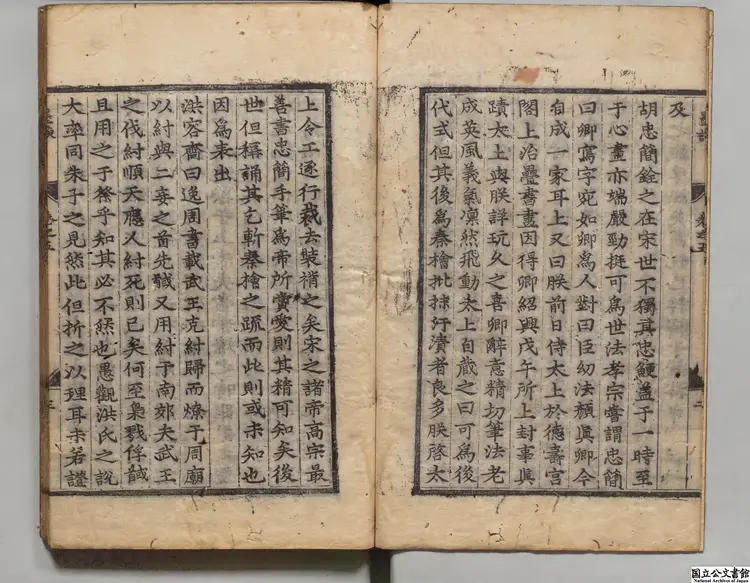 及
胡忠簡銓之在宋世不獨其忠鯁蓋于一時至
于心畫亦端嚴勁挺可爲世法孝宗嘗謂忠簡
曰卿寫字宛如卿爲人對曰臣幼法顔眞卿今
自成一家耳上又曰朕前日侍太上於德壽宮
閣上治疊書畫因得卿紹興戊午所上封事眞
蹟太上與朕詳玩久之喜卿辭意精切筆法老
成英風義氣凜然飛動太上自藏之曰可爲後
代式但其後爲秦檜批抹汙瀆者良多朕啓太
上令工逐行裁去裝褙之矣宋之諸帝高宗最
善書忠簡手筆爲帝所賞愛則其精可知矣後
世但稱誦其乞斬秦檜之疏而此則或未知也
因爲表出
洪容齋曰逸周書載武王克紂歸而燎于周廟
以紂與二妾之首先馘又用紂于南郊夫武王
之伐紂順天應人紂死則已矣何至梟戮俘馘
且用之于祭乎知其必不然也愚觀洪氏之說
大率同朱子之見然此但折之以理耳未若證
国立公文書館
National Archives of Japan